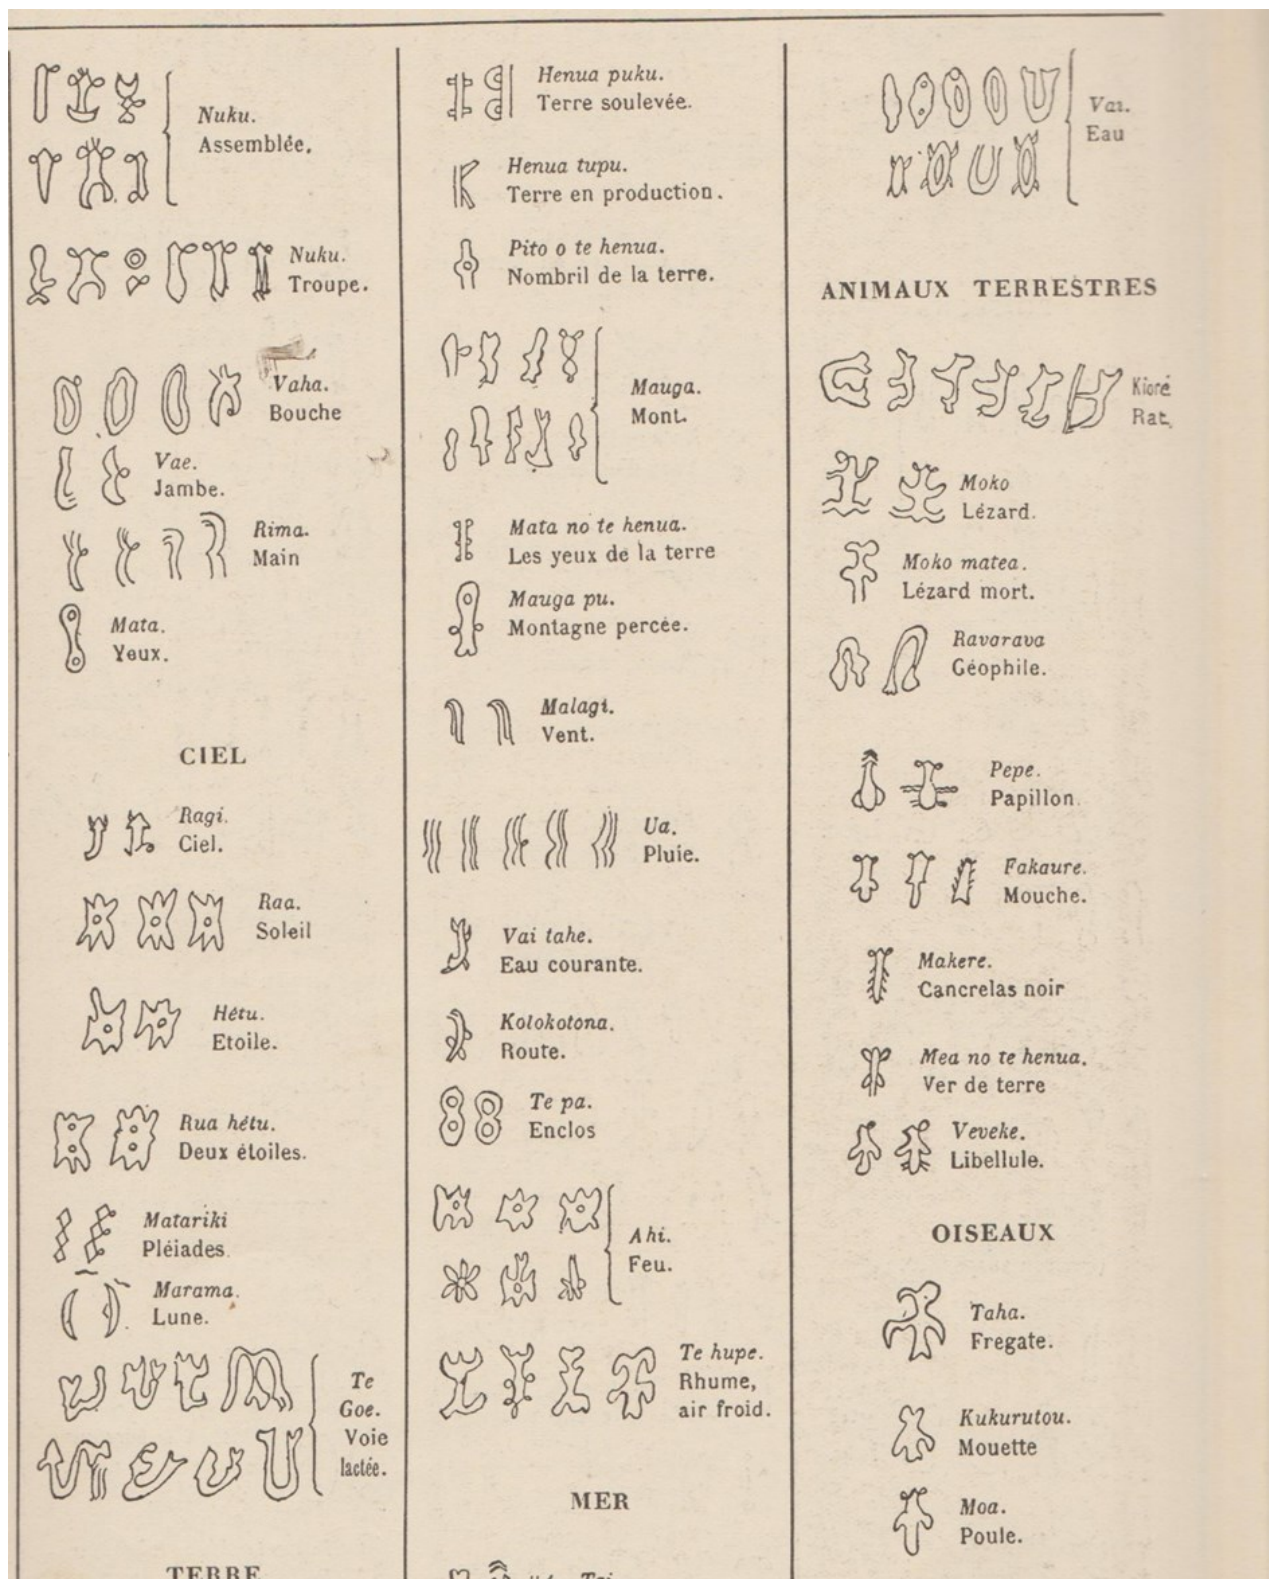 Nuku.
Assemblée.
Nuku.
Troupe.
Vaha.
Bouche
Vae.
Jambe.
Rima.
Main
Mata.
Yeux.
CIEL
Ragi.
Ciel.
Raa.
Soleil
Hétu.
Etoile.
Rua hétu.
Deux étoiles.
Matariki
Pléiades
Marama.
Lune.
Te
Goe.
Voie
lactée.
TERRE
Henua puku.
Terre soulevée.
Henua tupu.
Terre en production.
Pito o te henua.
Nombril de la terre.
Mauga.
Mont.
Mata no te henua.
Les yeux de la terre
Mauga pu.
Montagne percée.
Malagi.
Vent.
Ua.
Pluie.
Vai tahe.
Eau courante.
Kolokotona.
Route.
Te pa.
Enclos
Ahi.
Feu.
Te hupe.
Rhume,
air froid.
MER
Vai.
Eau
ANIMAUX TERRESTRES
Kioré
Rat.
Moko
Lézard.
Moko matea.
Lézard mort.
Ravarava
Géophile.
Pepe.
Papillon.
Fakaure.
Mouche.
Makere.
Cancrelas noir
Mea no te henua.
Ver de terre
Veveke.
Libellule.
OISEAUX
Taha.
Fregate.
Kukurutou.
Mouette
Moa.
Poule.